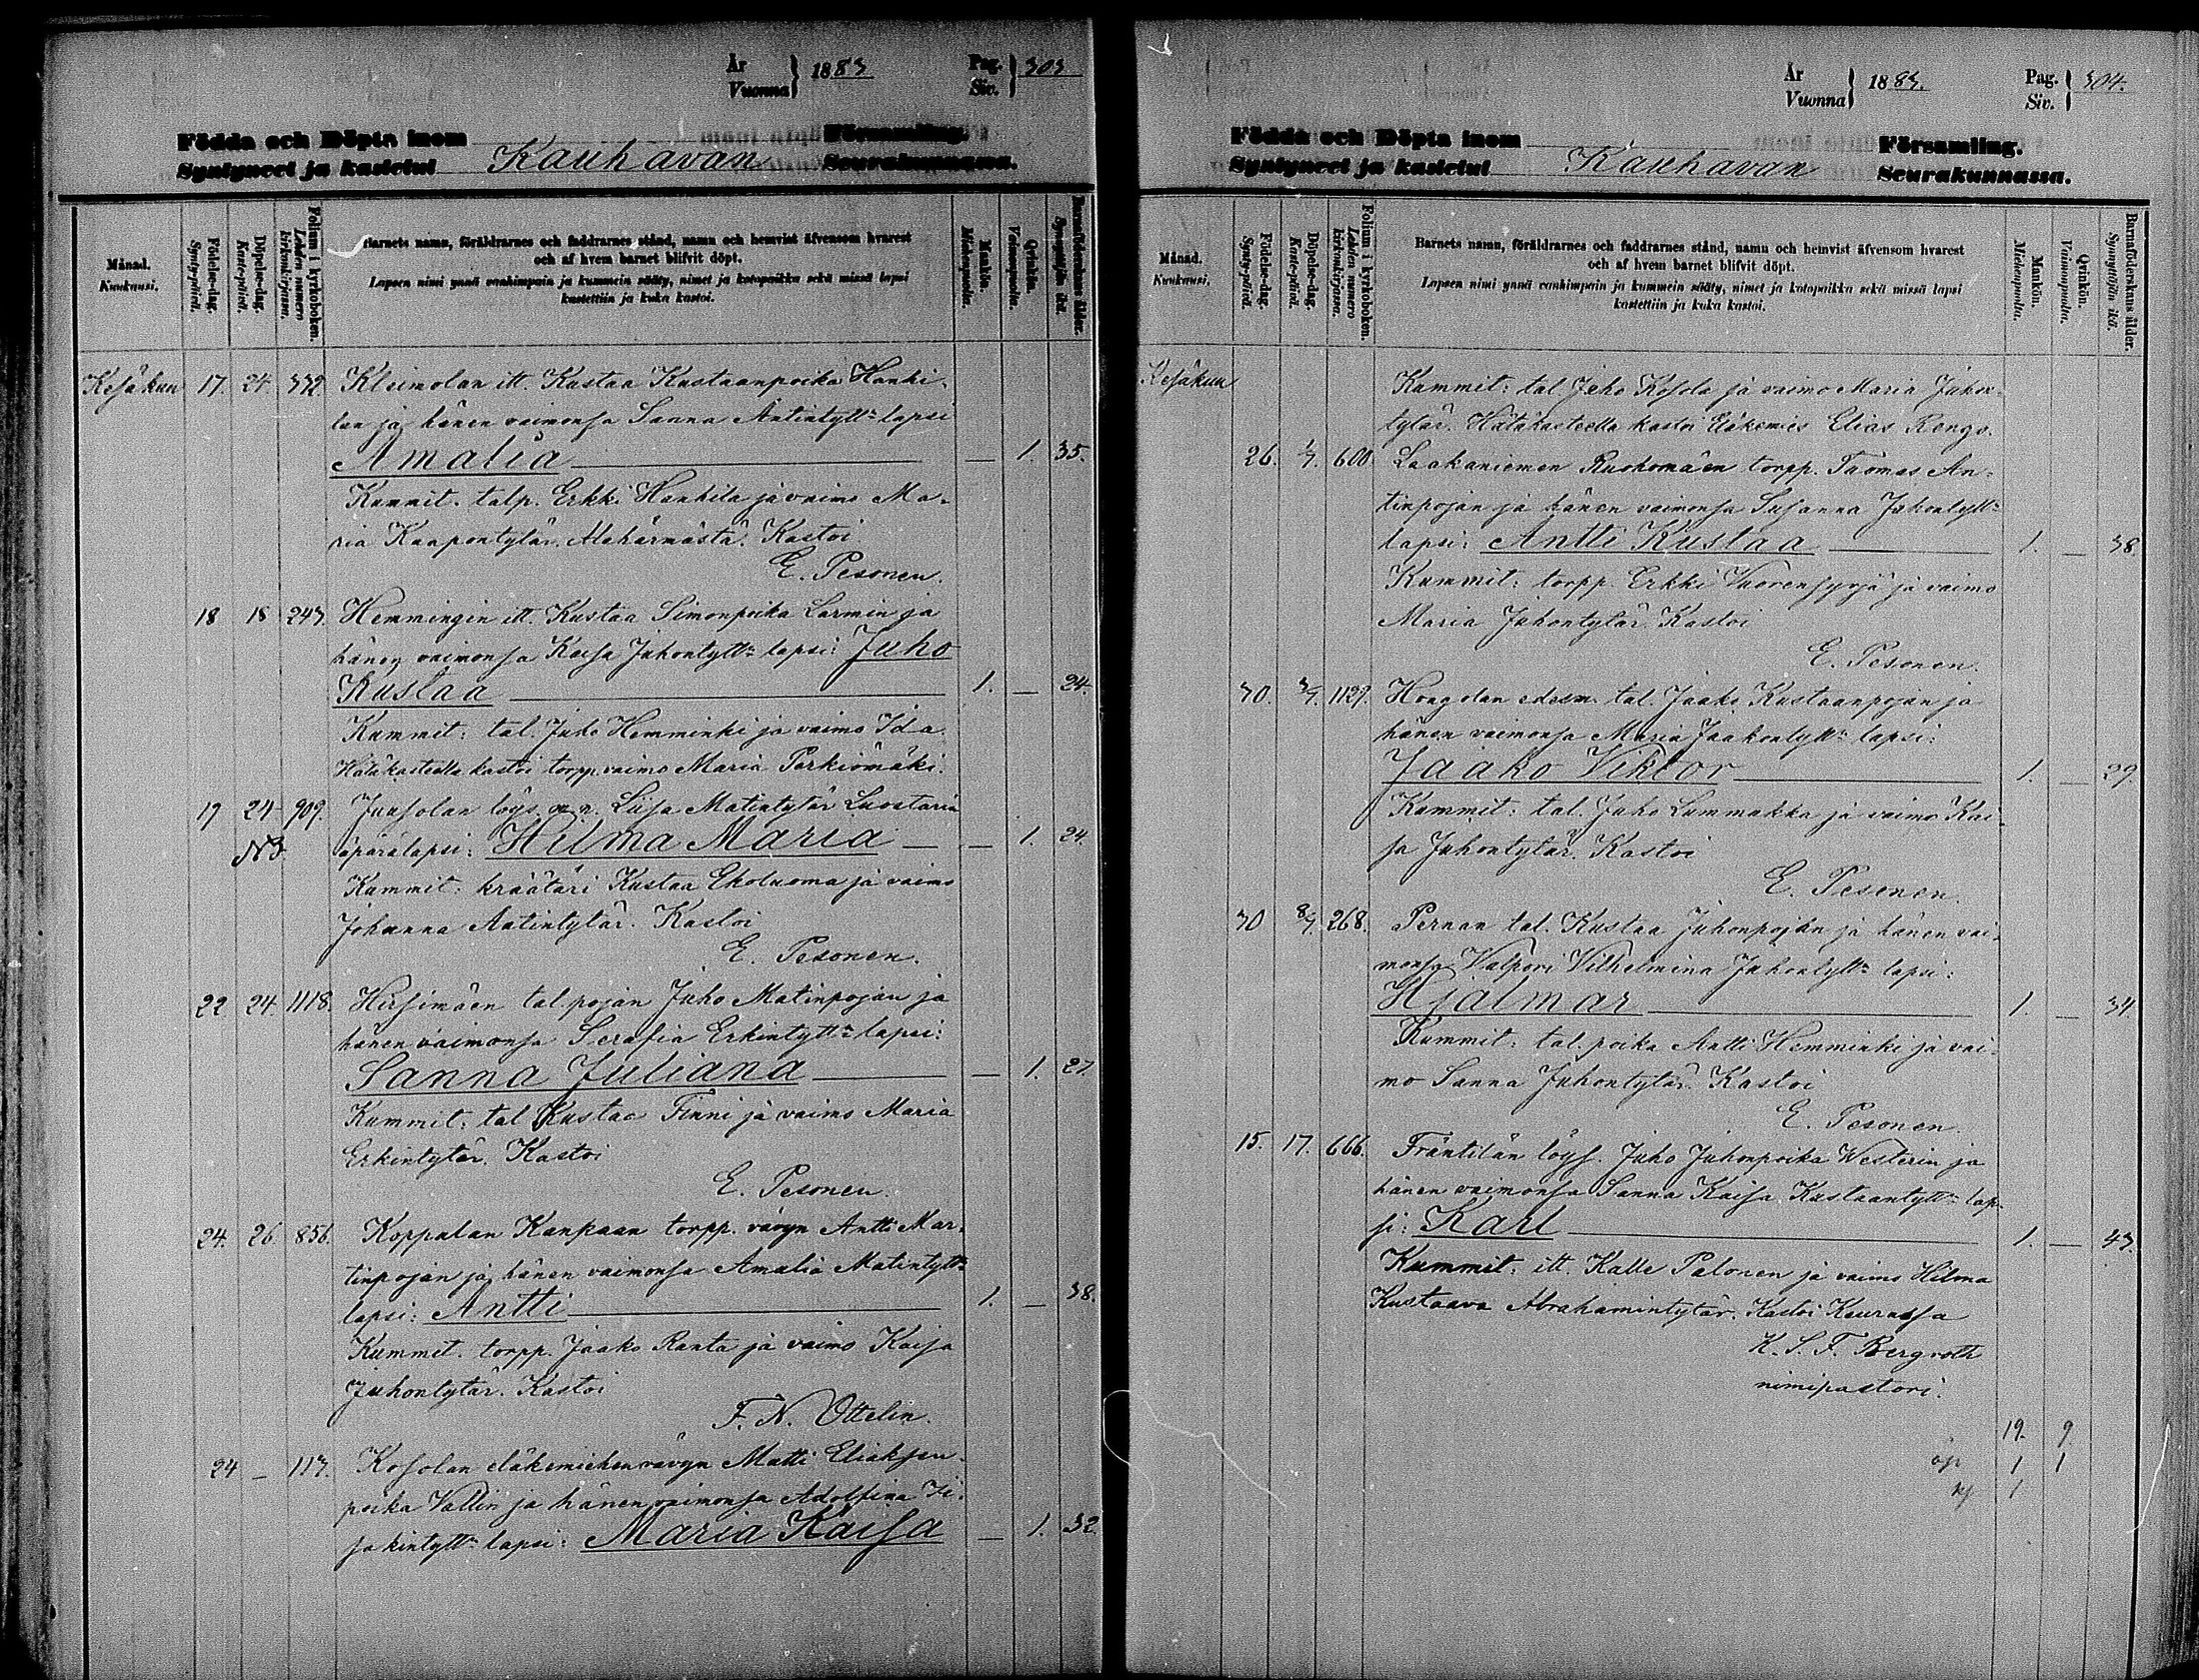 År
Vuonna } 1883 Pag.
Siv. } 303
Födda och Döpta inom Församling.
Syntyneet ja kastetut Kauhavan Seurakunnassa.
Månad.
Kuukausi.
Födelse-dag.
Synty-päivä.
Döpelse-dag.
Kaste-päivä.
Folium i kyrkoboken.
Lehden numero kirkonkirjassa.
Barnets namn, föräldrarnes och faddrarnes stånd, namn och hemvist äfvensom hvarest
och af hvem barnet blifvit döpt.
Lapsen nimi ynnä vanhimpain ja kummein sääty, nimet ja kotopaikka sekä missä lapsi
kastettiin ja kuka kastoi.
Mankön.
Miehenpuolta.
Qvinkön.
Vaimonpuolta.
Barnaföderskans ålder.
Synnyttäjän ikä.
Kesäkuu 17. 24. 332. Kleimolan itt. Kustaa Kustaanpoika Hanhi-
lan ja hänen vaimonsa Sanna Antintytt: lapsi
Amalia — 1. 35.
Kummit. talp. Erkki Hanhila ja vaimo Ma-
ria Kaapontytär. Alahärmästä. Kastoi
E. Pesonen.
18 18 243. Hemmingin itt. Kustaa Simonpoika Larmin ja
hänen vaimonsa Kaisa Juhontytt: lapsi: Juho
Kustaa 1. — 24.
Kummit: tal. Juho Hemminki ja vaimo Ida.
Hätäkasteella kastoi torpp. vaimo Maria Parkiömäki.
19 24 909. Juusolan löys. n. Liisa Matintytär Luostarin
NB. äpärälapsi: Hilma Maria — — 1. 24.
Kummit: kräätäri Kustaa Ekoluoma ja vaimo
Johanna Antintytär. Kastoi
E. Pesonen.
22 24. 1118. Hirsimäen tal. pojan Juho Matinpojan ja
hänen vaimonsa Serafia Erkintytt: lapsi:
Sanna Juliana — 1. 27.
Kummit: tal Kustaa Finni ja vaimo Maria
Erkintytär. Kastoi
E. Pesonen.
24. 26 856. Koppalan Kankaan torpp. vävyn Antti Mar-
tinpojan ja hänen vaimonsa Amalia Matintytt:
lapsi: Antti 1. — 38.
Kummit. torpp. Jaako Ranta ja vaimo Kaisa
Juhontytär. Kastoi
F. N. Ottelin.
24 — 113. Kosolan eläkemiehen vävyn Matti Eliaksen-
poika Vallin ja hänen vaimonsa Adolfina Ii-
sakintytt: lapsi: Maria Kaisa — 1. 32
År
Vuonna } 1883. Pag.
Siv. } 304.
Födda och Döpta inom Församling.
Syntyneet ja kastetut Kauhavan Seurakunnassa.
Månad.
Kuukausi.
Födelse-dag.
Synty-päivä.
Döpelse-dag.
Kaste-päivä.
Folium i kyrkoboken.
Lehden numero kirkonkirjassa.
Barnets namn, föräldrarnes och faddrarnes stånd, namn och hemvist äfvensom hvarest
och af hvem barnet blifvit döpt.
Lapsen nimi ynnä vanhimpain ja kummein sääty, nimet ja kotopaikka sekä missä lapsi
kastettiin ja kuka kastoi.
Mankön.
Miehenpuolta.
Qvinkön.
Vaimonpuolta.
Barnaföderskans ålder.
Synnyttäjän ikä.
Kesäkuu Kummit: tal Juho Kosola ja vaimo Maria Juhon-
tytär. Hätäkasteella kastoi Eläkemies Elias Rengo.
26. 1/7. 600 Laakaniemen Ruohomäen torpp. Taomas An-
tinpojan ja hänen vaimonsa Susanna Juhontytt:
lapsi: Antti Kustaa 1. — 38.
Kummit: torpp. Erkki Vuorensyrjä ja vaimo
Maria Juhontytär. Kastoi
E. Pesonen.
30. 3/7. 1129. Hougolan edesm. tal. Jaako Kustaanpojan ja
hänen vaimonsa Maria Jaakontytt: lapsi:
Jaako Viktor 1. — 29.
Kummit: tal. Juho Lummukka ja vaimo Kai-
sa Juhontytär. Kastoi
E. Pesonen.
30 8/7. 268. Pernan tal. Kustaa Juhonpojan ja hänen vai-
monsa Valpori Vilhelmina Juhontytt: lapsi:
Hjalmar 1. — 34.
Kummit: tal. poika Antti Hemminki ja vai-
mo Sanna Juhontytär. Kastoi
E. Pesonen.
15. 17. 666. Fräntilän löys. Juho Juhonpoika Westerin ja
hänen vaimonsa Sanna Kaisa Kustaantytt: lap-
si: Karl 1. — 43.
Kummit: itt. Kalle Palonen ja vaimo Hilma
Kustaava Abrahamintytär. Kastoi Keurussa
K. S. F. Bergroth
nimipastori.
19. 9
äp 1 1
1